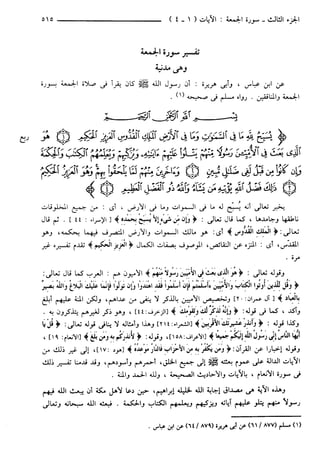 الجزء الثالث - سورة الجمعة : الآيات ( ١ - ٤ ) ٥١٥
تفسير سورة الجمعة
وهى مدنية
عن ابن عباس ، وأبى هريرة : أن رسول الله ﷺ كان يقرأ فى صلاة الجمعة بسورة
الجمعة والمنافقين . رواه مسلم فى صحيحه (١) .
﴿ يُسَبِّحُ لِلَّهِ مَا فِي السَّمَاوَاتِ وَمَا فِي الْأَرْضِ الْمَلِكِ الْقُدُّوسِ الْعَزِيزِ الْحَكِيمِ ١ هُوَ
الَّذِي بَعَثَ فِي الْأُمِّيِّينَ رَسُولًا مِنْهُمْ يَتْلُو عَلَيْهِمْ آيَاتِهِ وَيُزَكِّيهِمْ وَيُعَلِّمُهُمُ الْكِتَابَ وَالْحِكْمَةَ
وَإِنْ كَانُوا مِنْ قَبْلُ لَفِي ضَلَالٍ مُبِينٍ ٢ وَآخَرِينَ مِنْهُمْ لَمَّا يَلْحَقُوا بِهِمْ وَهُوَ الْعَزِيزُ الْحَكِيمُ
٣ ذَلِكَ فَضْلُ اللَّهِ يُؤْتِيهِ مَنْ يَشَاءُ وَاللَّهُ ذُو الْفَضْلِ الْعَظِيمِ ٤ ﴾
ربع
يخبر تعالى أنه يُسبح له ما فى السموات وما فى الأرض ، أى : من جميع المخلوقات
ناطقها وجامدها ، كما قال تعالى : ﴿ وَإِن مِّن شَيْءٍ إِلَّا يُسَبِّحُ بِحَمْدِهِ ﴾ [ الإسراء : ٤٤ ] . ثم قال
تعالى : ﴿ الْمَلِكِ الْقُدُّوسِ ﴾ أى : هو مالك السموات والأرض المتصرف فيهما بحكمه ، وهو
المقدس ، أى : المنزه عن النقائص ، الموصوف بصفات الكمال ﴿ الْعَزِيزِ الْحَكِيمِ ﴾ تقدم تفسيره غير
مرة .
وقوله تعالى : ﴿ هُوَ الَّذِي بَعَثَ فِي الْأُمِّيِّينَ رَسُولًا مِّنْهُمْ ﴾ الأميون هم : العرب كما قال تعالى:
﴿ وَقُل لِّلَّذِينَ أُوتُوا الْكِتَابَ وَالْأُمِّيِّينَ أَأَسْلَمْتُمْ فَإِنْ أَسْلَمُوا فَقَدِ اهْتَدَوا وَّإِن تَوَلَّوْا فَإِنَّمَا عَلَيْكَ الْبَلَاغُ وَاللَّهُ بَصِيرٌ
بِالْعِبَادِ ﴾ [ آل عمران : ٢٠ ] وتخصيص الأميين بالذكر لا ينفى من عداهم، ولكن المنة عليهم أبلغ
وأكد ، كما فى قوله : ﴿ وَإِنَّهُ لَذِكْرٌ لَّكَ وَلِقَوْمِكَ ﴾ [ الزخرف: ٤٤ ] ، وهو ذكر لغيرهم يتذكرون به .
وكذا قوله : ﴿ وَأَنذِرْ عَشِيرَتَكَ الْأَقْرَبِينَ ﴾ [الشعراء: ٢١٤] وهذا وأمثاله لا ينافى قوله تعالى : ﴿ قُلْ يَا
أَيُّهَا النَّاسُ إِنِّي رَسُولُ اللَّهِ إِلَيْكُمْ جَمِيعًا ﴾ [الأعراف: ١٥٨]، وقوله: ﴿ لِأُنذِرَكُم بِهِ وَمَن بَلَغَ ﴾ [الأنعام: ١٩] ،
وقوله إخبارا عن القرآن: ﴿ وَمَن يَكْفُرْ بِهِ مِنَ الْأَحْزَابِ فَالنَّارُ مَوْعِدُهُ ﴾ [هود: ١٧]، إلى غير ذلك من
الآيات الدالة على عموم بعثته ﷺ إلى جميع الخلق، أحمرهم وأسودهم، وقد قدمنا تفسير ذلك
فى سورة الأنعام ، بالآيات والأحاديث الصحيحة ، ولله الحمد والمنة .
وهذه الآية هى مصداق إجابة الله لخليله إبراهيم، حين دعا لأهل مكة أن يبعث الله فيهم
رسولاً منهم يتلو عليهم آياته ويزكيهم ويعلمهم الكتاب والحكمة . فبعثه الله سبحانه وتعالى
(١) مسلم (٨٧٧ / ٦١) عن أبى هريرة (٨٧٩ / ٦٤) عن ابن عباس .